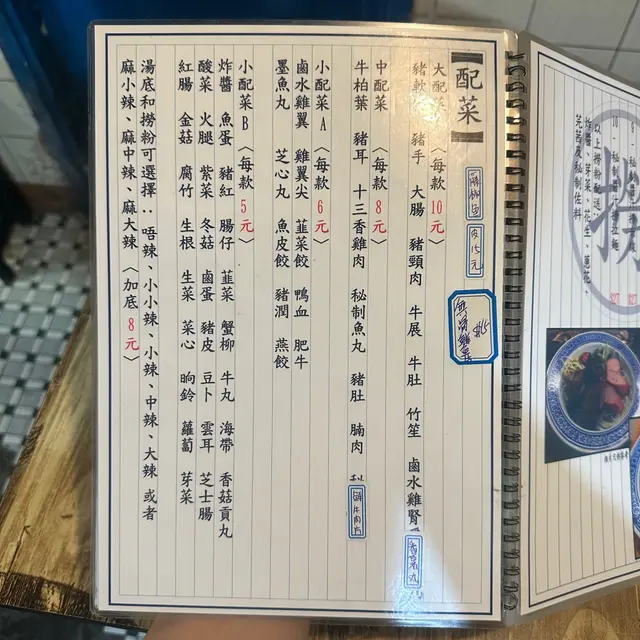 【配菜】
大配菜〈每款10元〉
豬軟 豬手 大腸 豬頸肉 牛展 牛肚 竹笙 鹵水雞腎
中配菜〈每款8元〉
牛柏葉 豬耳 十三香雞肉 秘制魚丸 豬肚 腩肉
小配菜A〈每款6元〉
鹵水雞翼 雞翼尖 韮菜餃 鴨血 肥牛
墨魚丸 芝心丸 魚皮餃 豬潤 燕餃
小配菜B〈每款5元〉
炸醬 魚蛋 豬紅 腸仔 韮菜 蟹柳 牛丸 海帶 香菇貢丸
酸菜 火腿 紫菜 冬菇 鹵蛋 豬皮 豆卜 雲耳 芝士腸
紅腸 金菇 腐竹 生根 生菜 菜心 晌鈴 蘿蔔 芽菜
湯底和撈粉可選擇：唔辣、小小辣、小辣、中辣、大辣 或者
麻小辣、麻中辣、麻大辣〈加底8元〉
$15
撈
以上撈粉配送
芫茜及秘制佐料